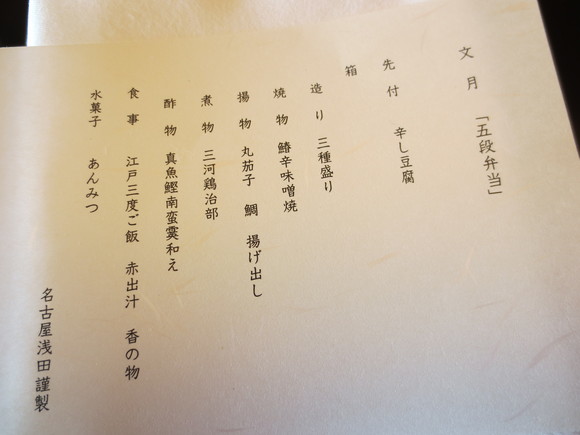 文月 「五段弁当」
先付 辛し豆腐
箱
造り 三種盛り
焼物 鰆辛味噌焼
揚物 丸茄子 鯛 揚げ出し
煮物 三河鶏治部
酢物 真魚鰹南蛮霙和え
食事 江戸三度ご飯 赤出汁 香の物
水菓子 あんみつ
名古屋浅田謹製